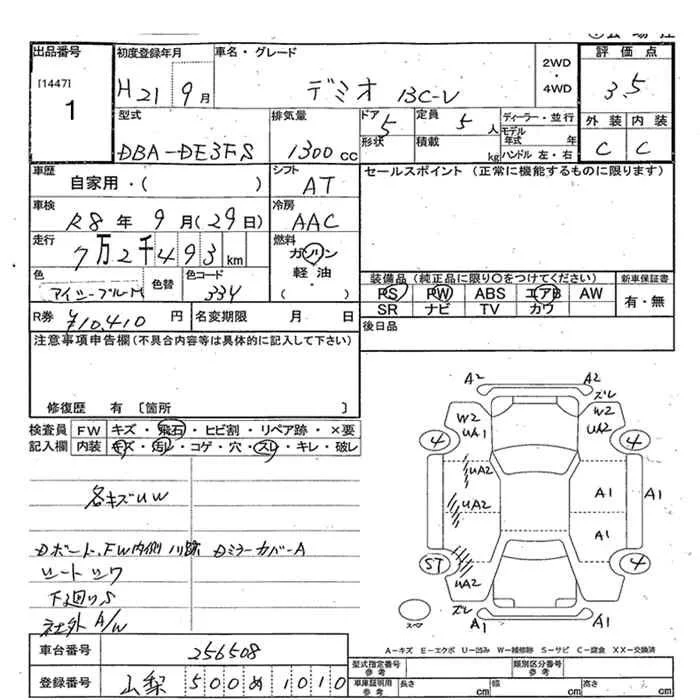 出品番号 初度登録年月 車名・グレード 2WD・4WD 評価点
[1447] 1
H21 9月 デミオ 13C-V 3.5
型式 排気量 ドア 定員 ディーラー・並行 外装 内装
DBA-DE3FS 1300cc 5 5人 モデル年式 年 C C
形状 積載 kg ハンドル 左・右
車歴 自家用・( ) シフト AT セールスポイント (正常に機能するものに限ります)
車検 R8年 9月(29日) 冷房 AAC
走行 7万2千493km 燃料 ガソリン
軽油・( )
色 色替 色コード 334 装備品 (純正品に限り〇をつけてください) 新車保証書
PS PW ABS エアB AW 有・無
SR ナビ TV カワ
R券 ¥10,410円 名変期限 月 日 後日品
注意事項申告欄 (不具合内容等は具体的に記入して下さい)
修復歴 有 〔箇所 〕
検査員記入欄 FW キズ・飛石・ヒビ割・リペア跡・×要
内装 キズ・汚レ・コゲ・穴・スレ・キレ・破レ
各キズUW
Dボード、FW内側ノリ跡 DミラーカバーA
シートシワ
下回りS
社外A/W
A2 A2
スレ
W2 UA1 W2 UA2
4 4
UA2
UA2 A1 A1
A1
ST UA2 4
スレ
A1 A1
A-キズ E-エクボ U-凹み W-補修跡 S-サビ C-腐食 XX-交換済
車台番号 256508
登録番号 山梨 500 め 1010
型式指定番号 参考 類別区分番号 参考
車庫証明用 参考 長さ cm 幅 cm 高さ cm